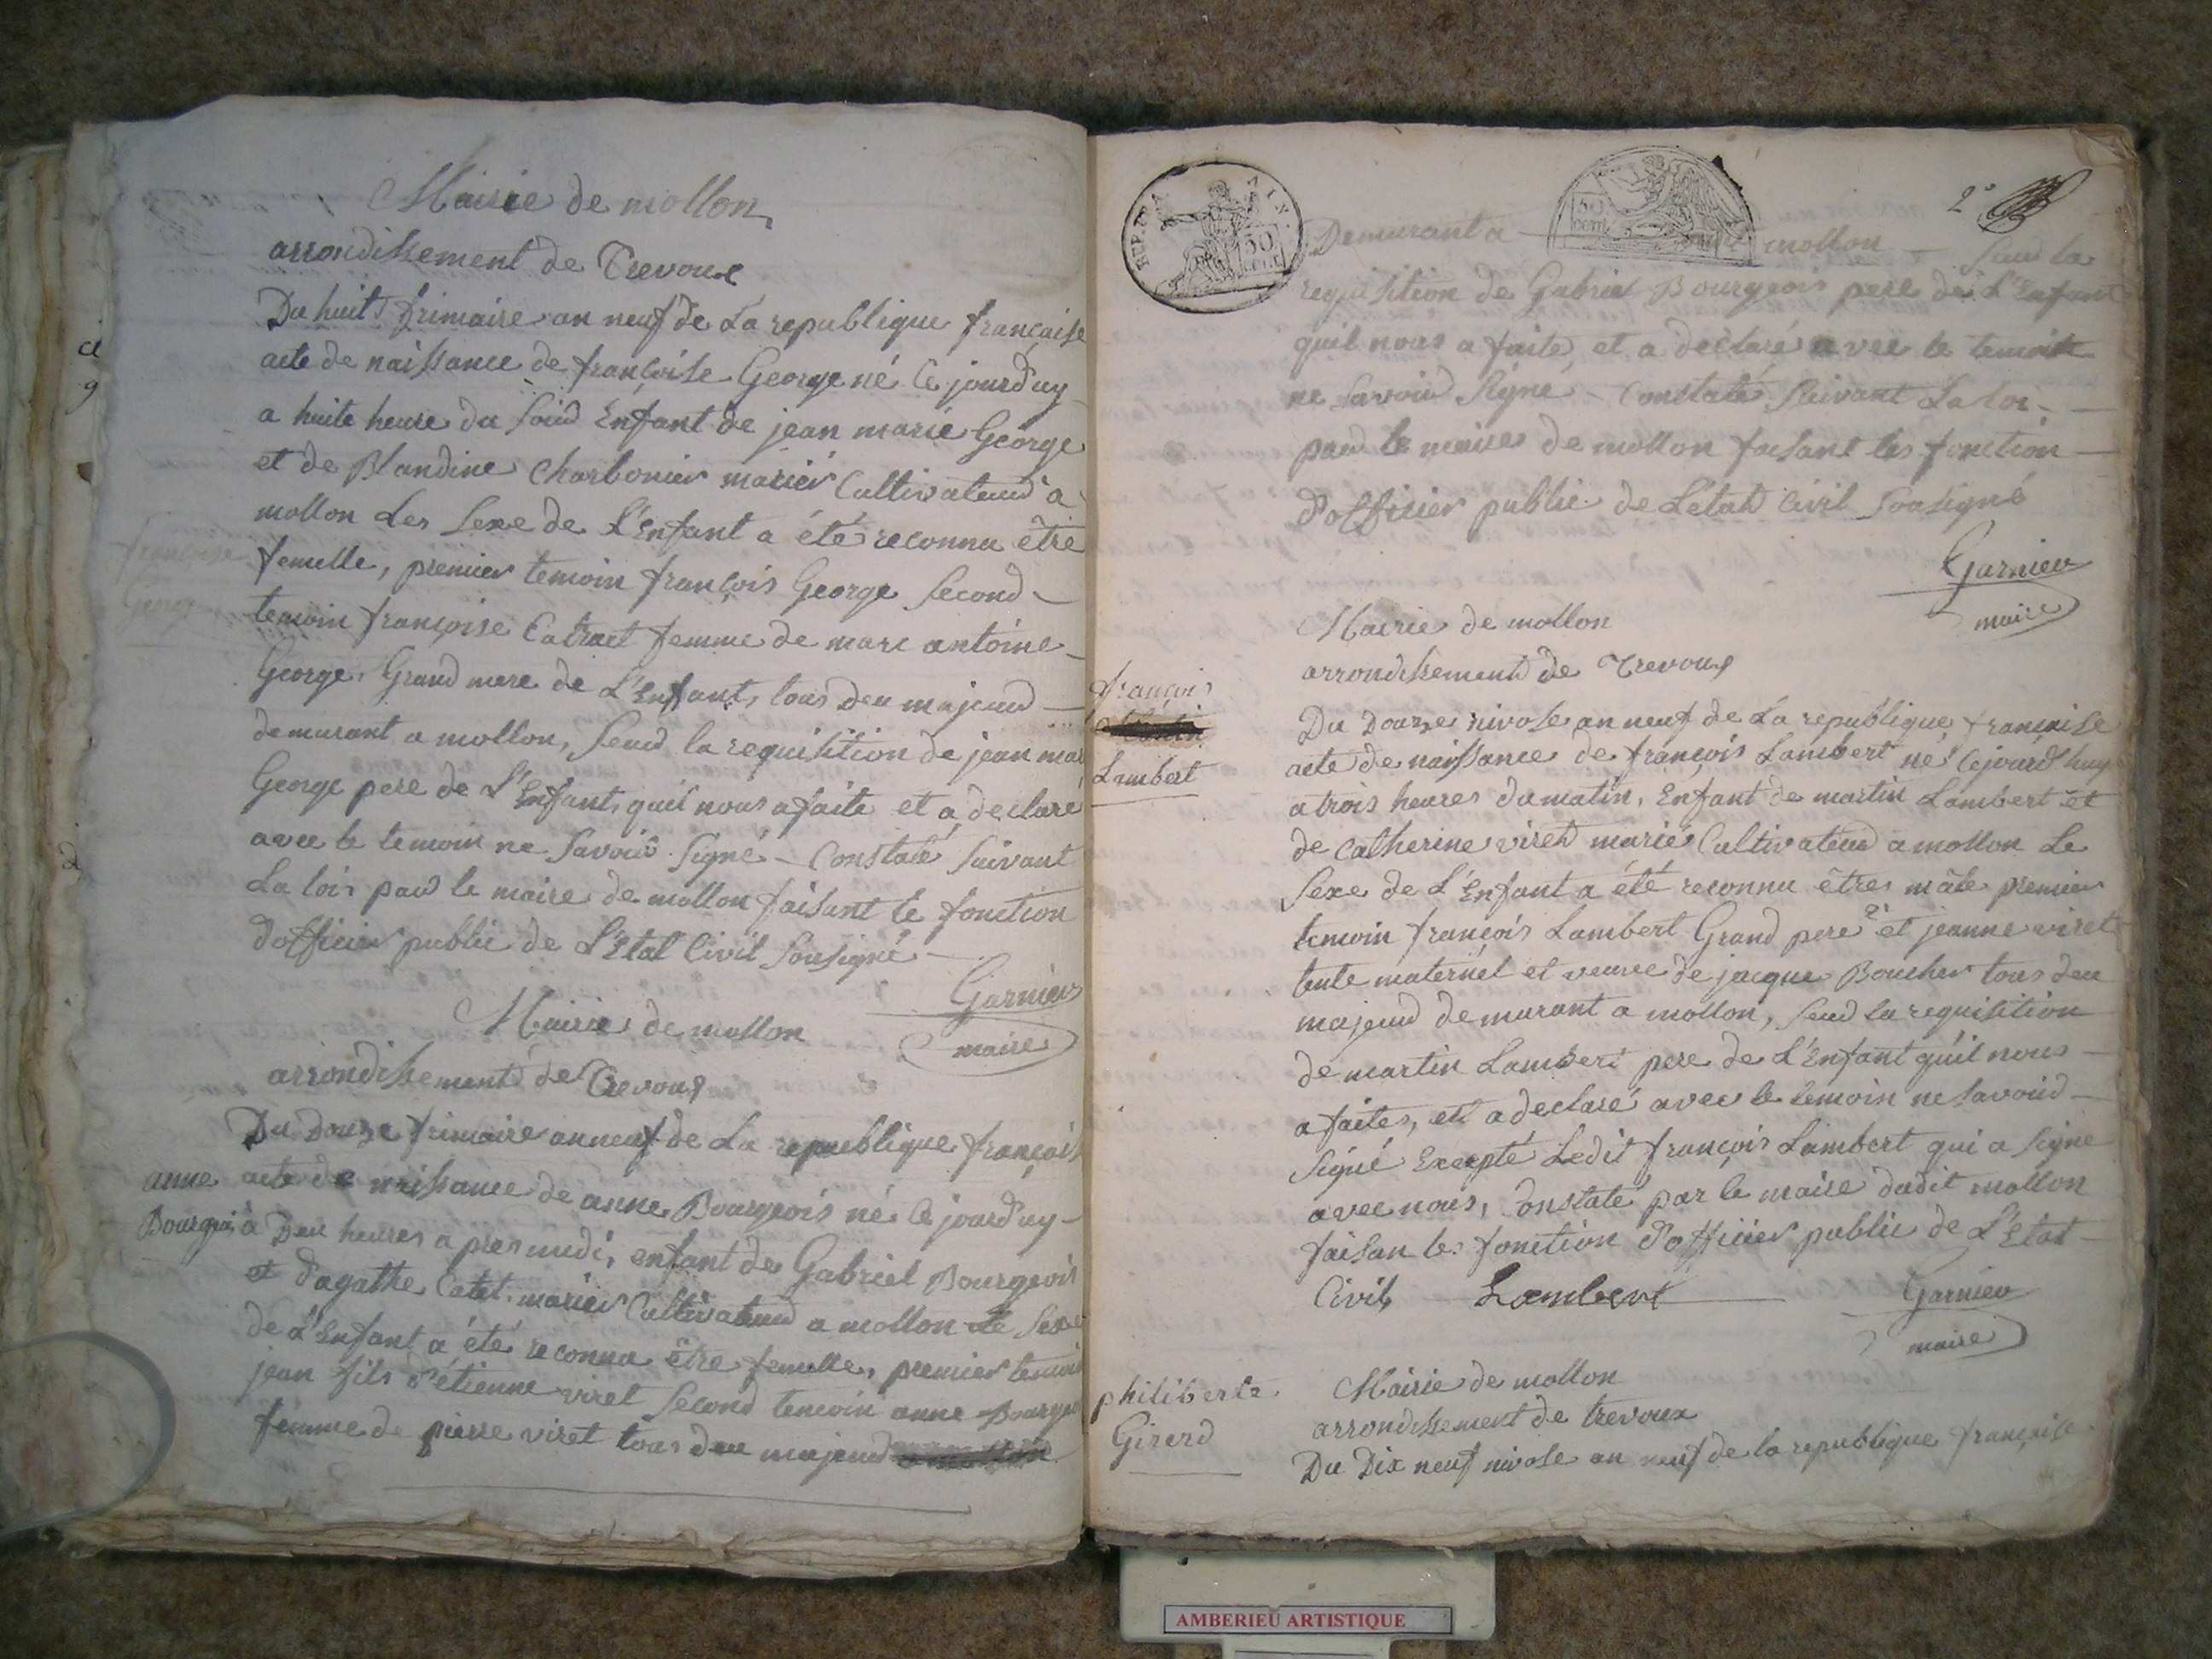 Mairie de mollon
arrondissement de Trevoux
Du huit frimaire an neuf de La republique française
acte de naissance de françoise George né Ce jourd'uy
a huite heure du soird Enfant de jean marie George
et de Blandine Charbonier mariér Cultivateurd a
mollon Les Sexe de L'Enfant a été reconnu être
femelle, premier temoin françois George Second
temoin françoise Catract femme de marc antoine
George, Grand mere de L'Enfant, tous Deu majeurd
demurant a mollon, Seurd la requisition de jean mar
George pere de L'Enfant, quil nous a faite et a declaré
avec le temoin ne Savoir Signé - Constaté Suivant
La loir pard le maire de mollon faisant le fonction
d'officier public de L'Etat Civil Sousigné
Garnier
maire
françoise
George
Mairie de mollon
arrondissement de Trevoux
Du Douze frimaire an neuf de La republique françois
anne
Bourgois
acte de naissance de anne Bourgeois né Ce jourd'uy
à Deu heures a pres midi, enfant de Gabriel Bourgeois
et d'agathe Catet mariér Cultivateurd a mollon Le Sexe
de L'Enfant a été reconnu être femelle, premier temoin
jean fils d'étienne viret Second temoin anne Bourgeoi
femme de pierre viret tous deu majeurd
REP. FRA
50
CENT
50
cent
2e
Demurant a mollon Seurd la
requisition de Gabriel Bourgeois pere de L'Enfant
quil nous a faite, et a déclaré avec le temoin
ne Savoird Signé - Constaté Suivant La loi
pard le maire de mollon faisant les fonction
d'officier public de L'état Civil Sousigné
Garnier
maire
Mairie de mollon
arrondissement de Trevoux
françois
Lambert
Du Douze nivose an neuf de La republique française
acte de naissance de françois Lambert né Cejourd'huy
a trois heures du matin, Enfant de martin Lambert et
de Catherine viret mariés Cultivateurd a mollon Le
Sexe de L'Enfant a été reconnu êtres mâle premier
temoin françois Lambert Grand pere et jeanne viret
tente maternel et veuve de jacque Boucher tous deu
majeurd demurant a mollon, Seurd la requisition
de martin Lambert pere de L'Enfant qu'il nous
a faites, et a declaré avec le temoin ne Savoird
Signé Excepté Ledit françois Lambert qui a Signé
avec nous, Constaté par le maire dudit mollon
faisan les fonction d'officier public de L'Etat
Civil Lambert
Garnier
maire
philiberte
Girerd
Mairie de mollon
arrondissement de trevoux
Du Dix neuf nivose an neuf de la republique française
AMBERIEU ARTISTIQUE